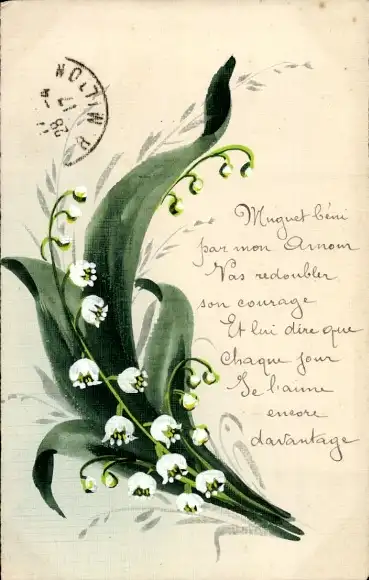 MOLTIN
17
28
Muguet béni
par mon Amour
Vas redoubler
son courage
Et lui dire que
Chaque jour
Je l'aime
encore
davantage